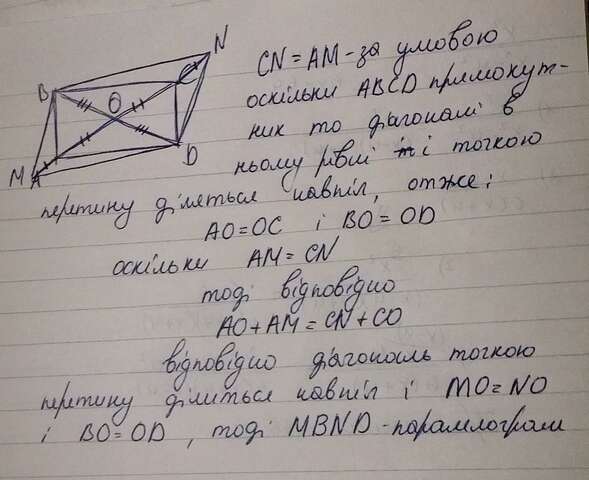 N
B
C
O
D
M A
CN = AM - за умовою
оскільки ABCD прямокут-
ник то діагоналі в
ньому рівні і точкою
перетину діляться навпіл, отже:
AO = OC і BO = OD
оскільки AM = CN
тоді відповідно
AO + AM = CN + CO
відповідно діагональ точкою
перетину ділиться навпіл і MO = NO
і BO = OD, тоді MBND - паралелограм